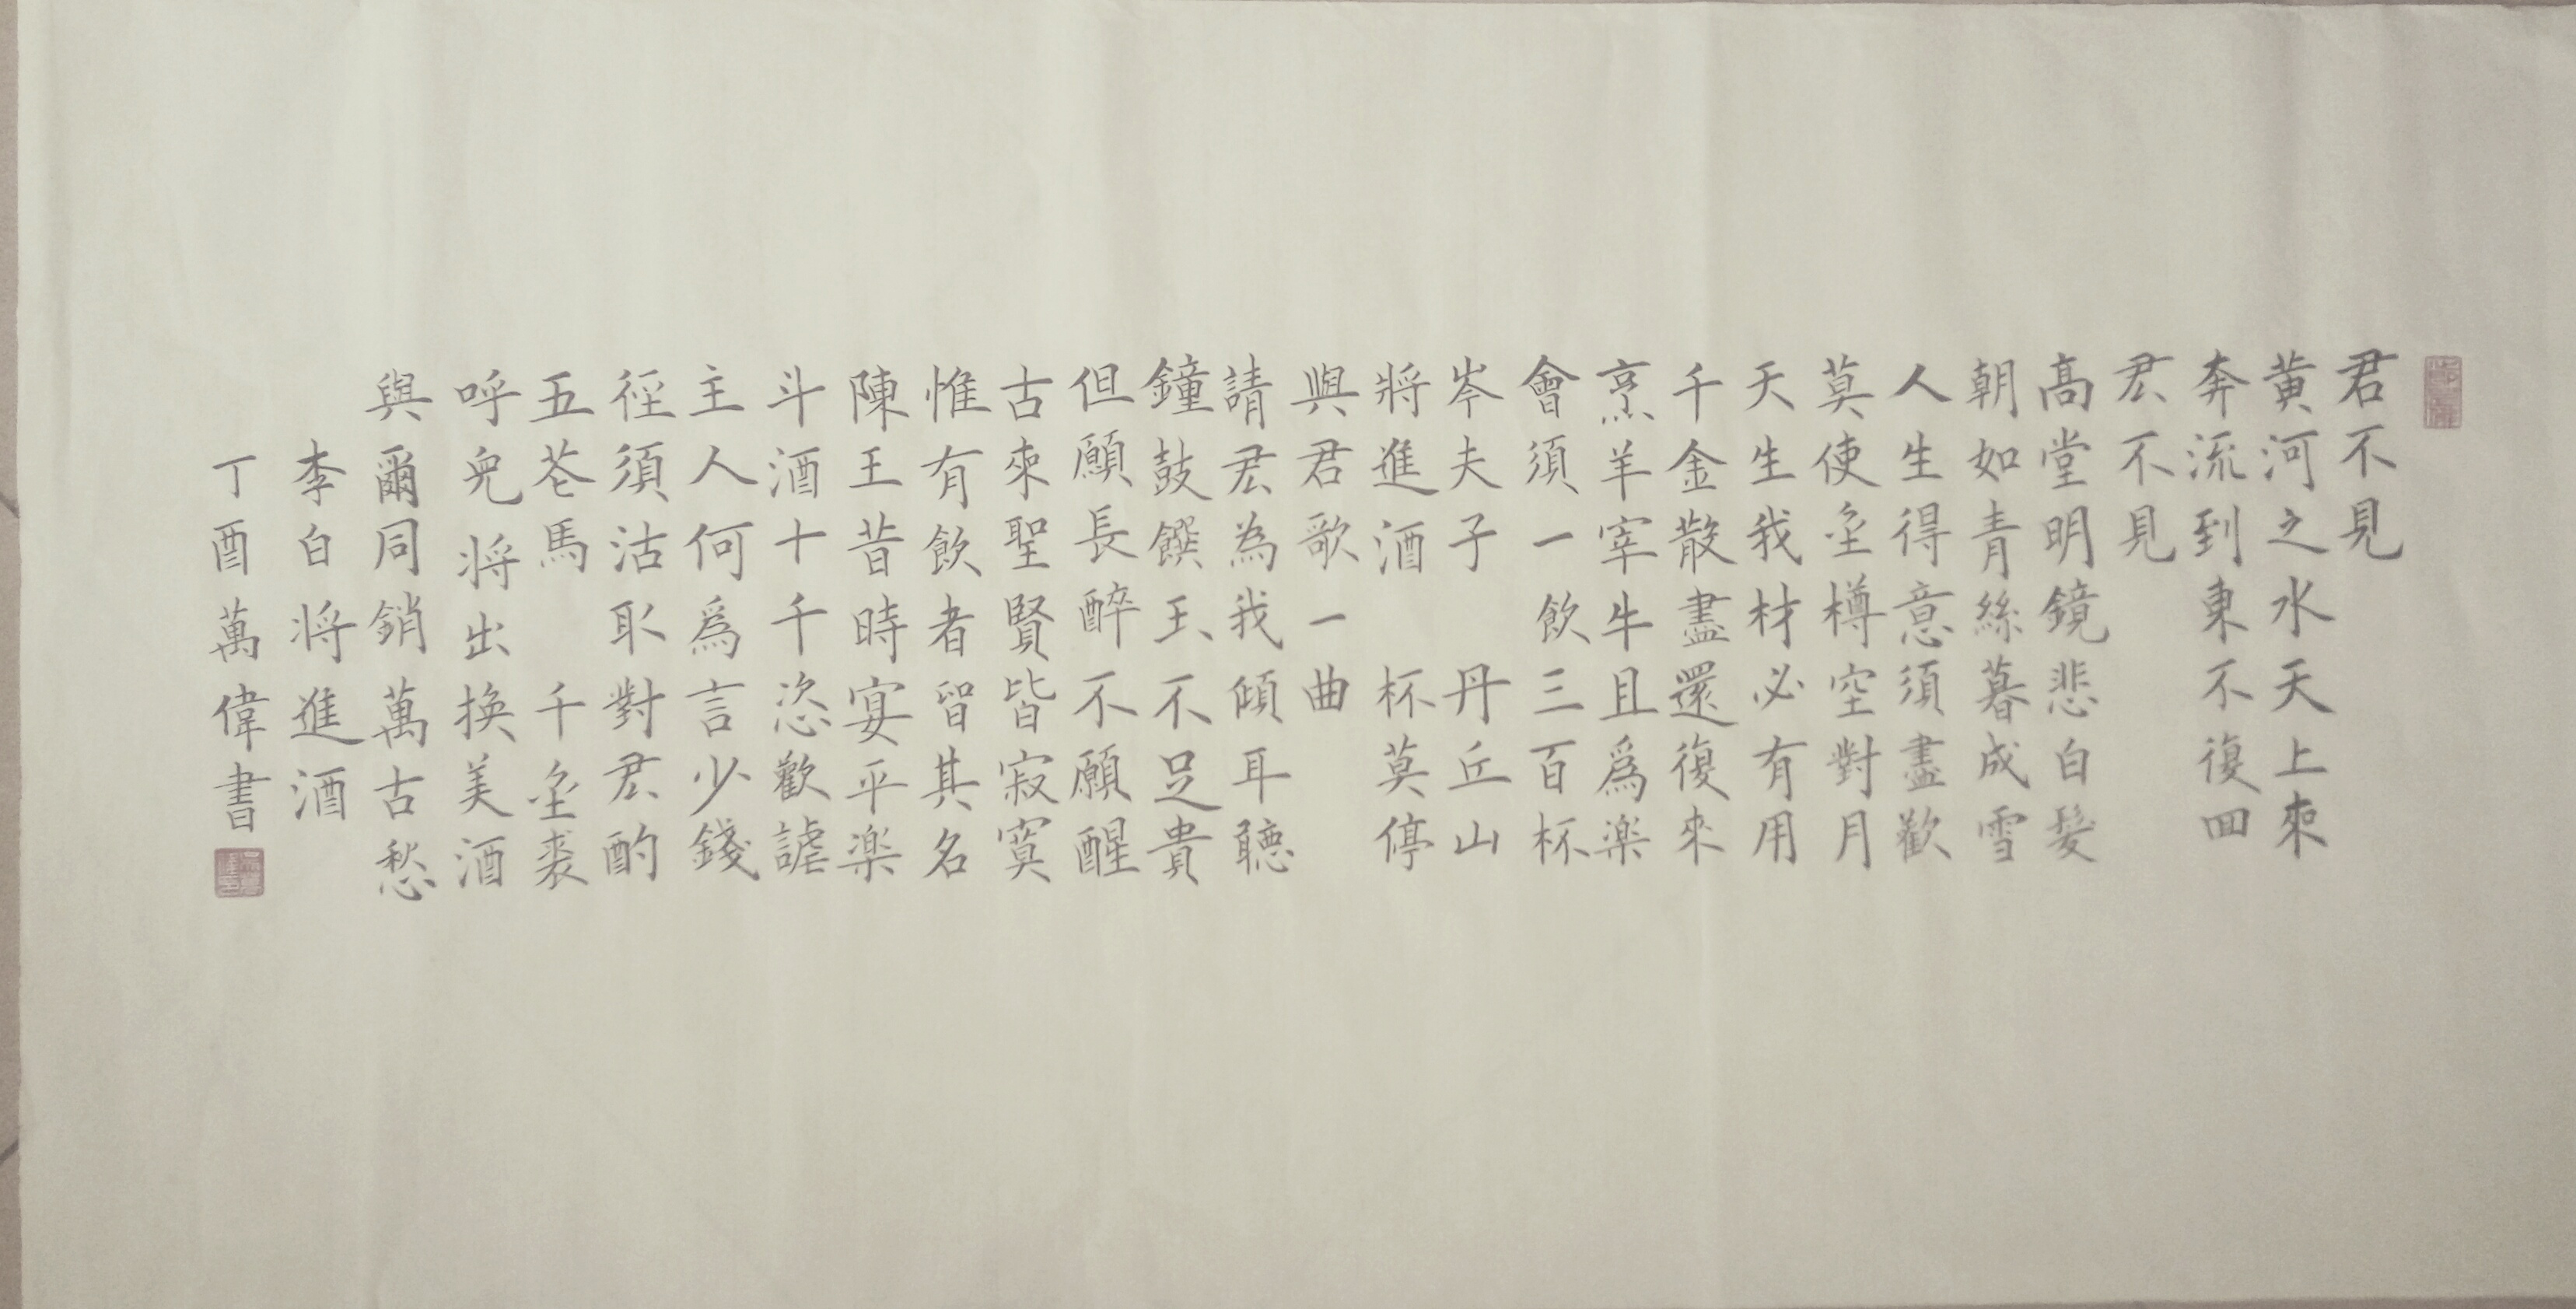 君不見
黃河之水天上來
奔流到東不復回
君不見
高堂明鏡悲白髮
朝如青絲暮成雪
人生得意須盡歡
莫使金樽空對月
天生我材必有用
千金散盡還復來
烹羊宰牛且爲樂
會須一飲三百杯
岑夫子 丹丘山
將進酒 杯莫停
與君歌一曲
請君為我傾耳聽
鐘鼓饌玉不足貴
但願長醉不願醒
古來聖賢皆寂寞
惟有飲者留其名
陳王昔時宴平樂
斗酒十千恣歡謔
主人何爲言少錢
徑須沽取對君酌
五花馬 千金裘
呼兒將出換美酒
與爾同銷萬古愁
李白將進酒
丁酉萬偉書